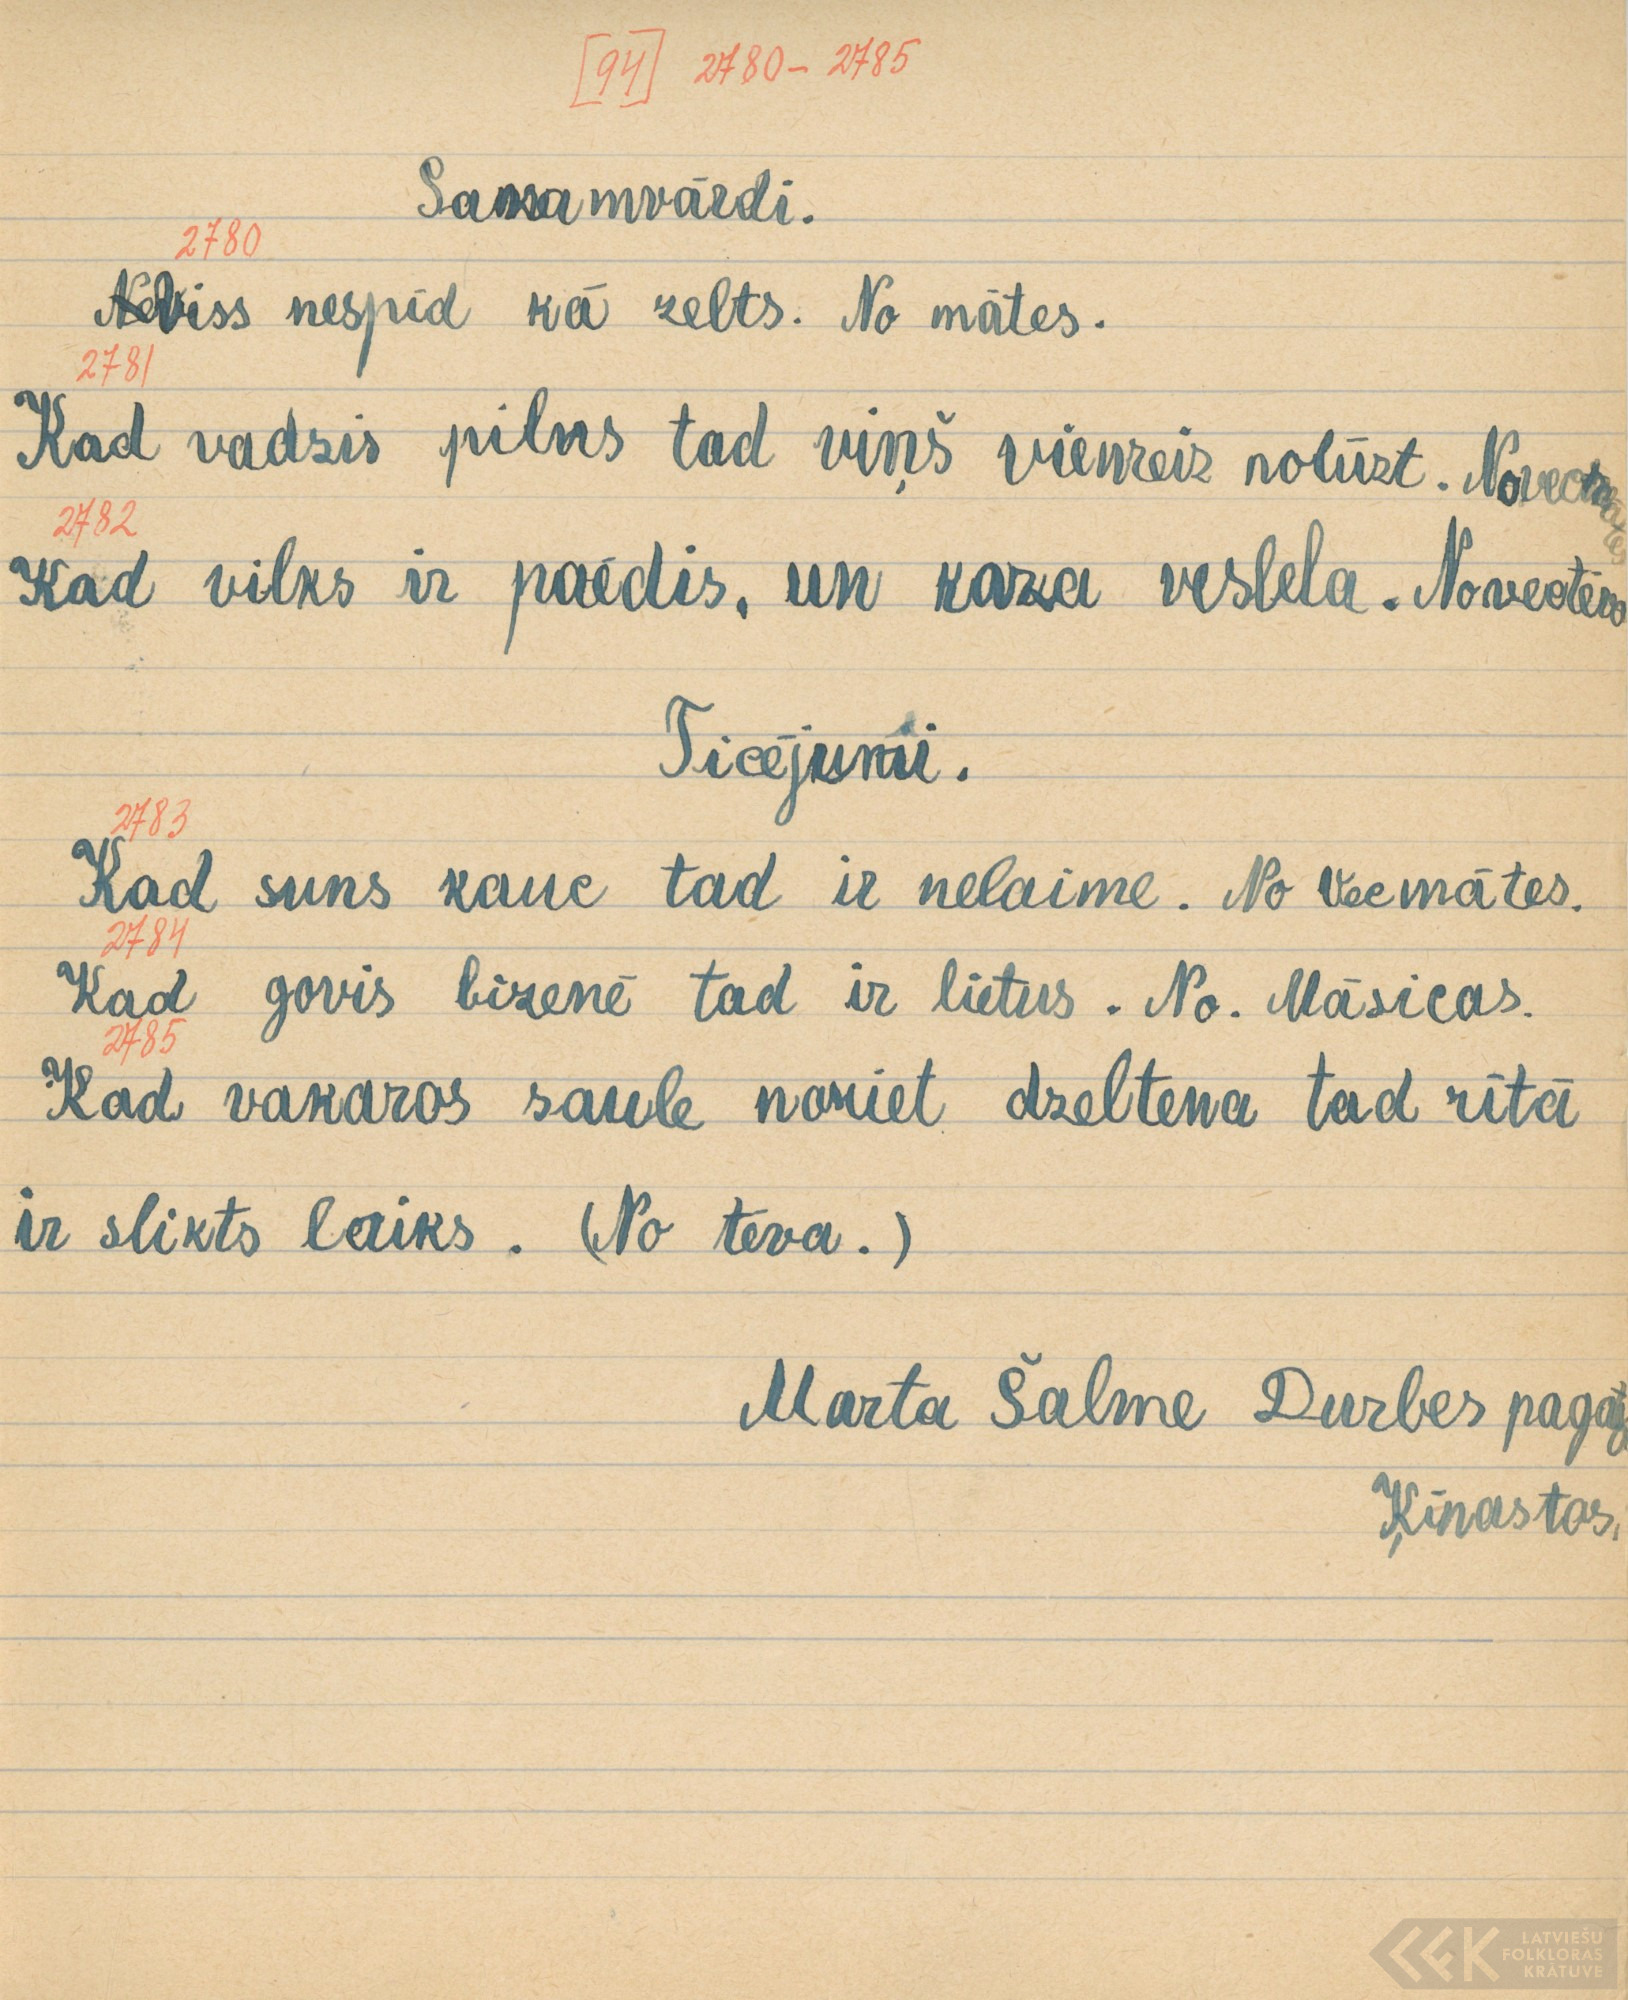 [94] 2780-2785
Sakamvārdi.
2780
Viss nespīd kā zelts. No mātes.
2781
Kad vadzis pilns tad viņš vienreiz nolūzt. No vecmātes
2782
Kad vilks ir paēdis, un kaza veslela. No vectēva
Ticējumi.
2783
Kad suns kauc tad ir nelaime. No Vecmātes.
2784
Kad govis bizenē tad ir lietus. No. Māsicas.
2785
Kad vakaros saule noriet dzeltena tad rītā
ir slikts laiks. (No tēva.)
Marta Šalme Durbes pagasts
Ķīnastos.
LATVIEŠU
FOLKLORAS
KRĀTUVE